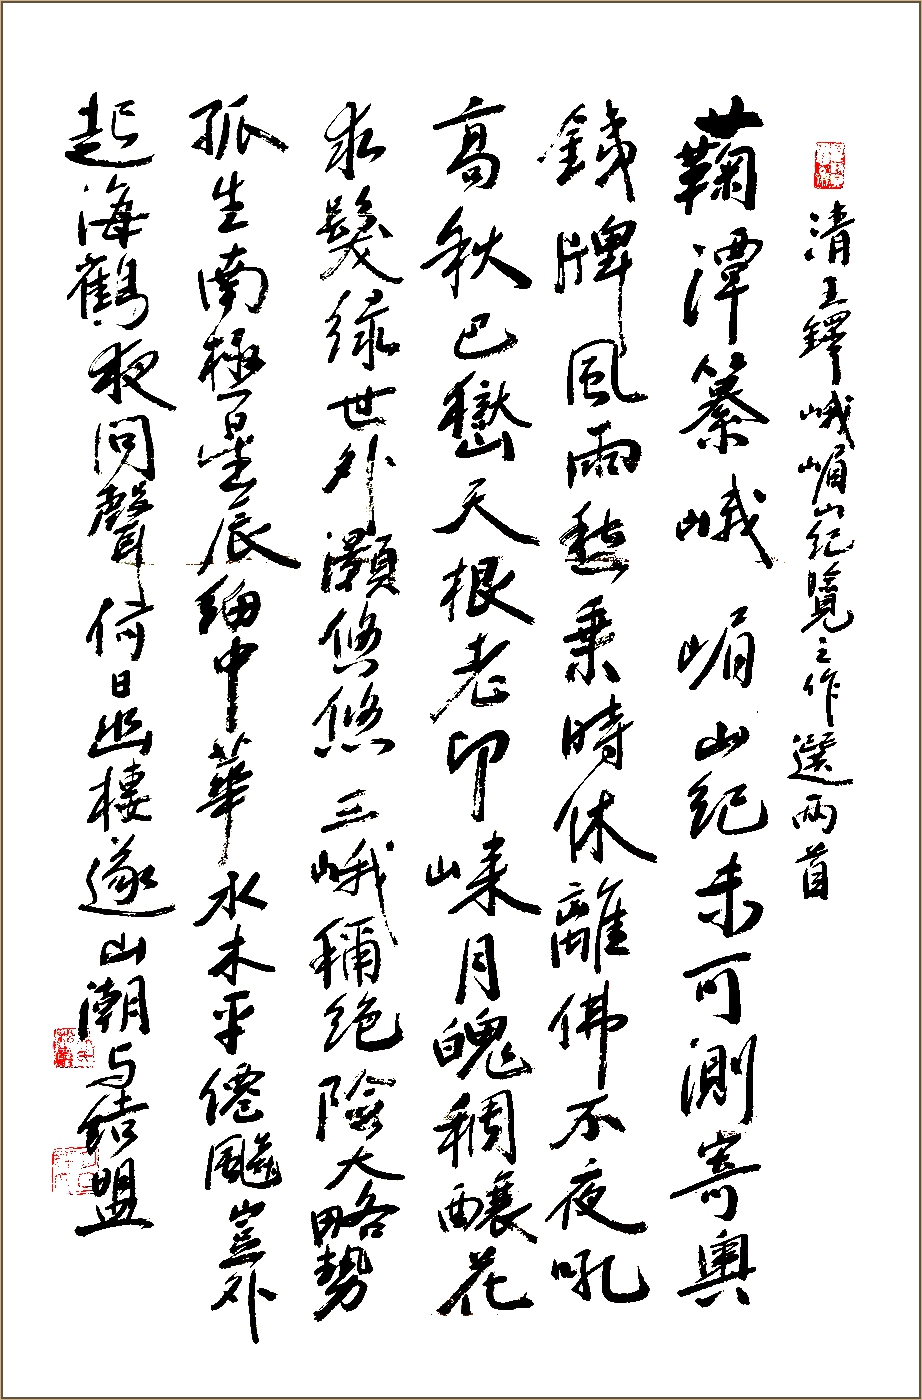 清王鐸峨嵋山紀覽之作選兩首
蘜潭纂峨嵋山紀未可測寄輿
錢牌風雨愁乘時休離佛不夜吼
高秋巴嶽天根老卬崍月魄稠釀花
求髮綠世外灝悠悠三峨稱絶險大略勢
孤生南極星辰緬中華水木平僊飈豈外
起海鶴夜同聲何日幽棲遂山潮与結盟